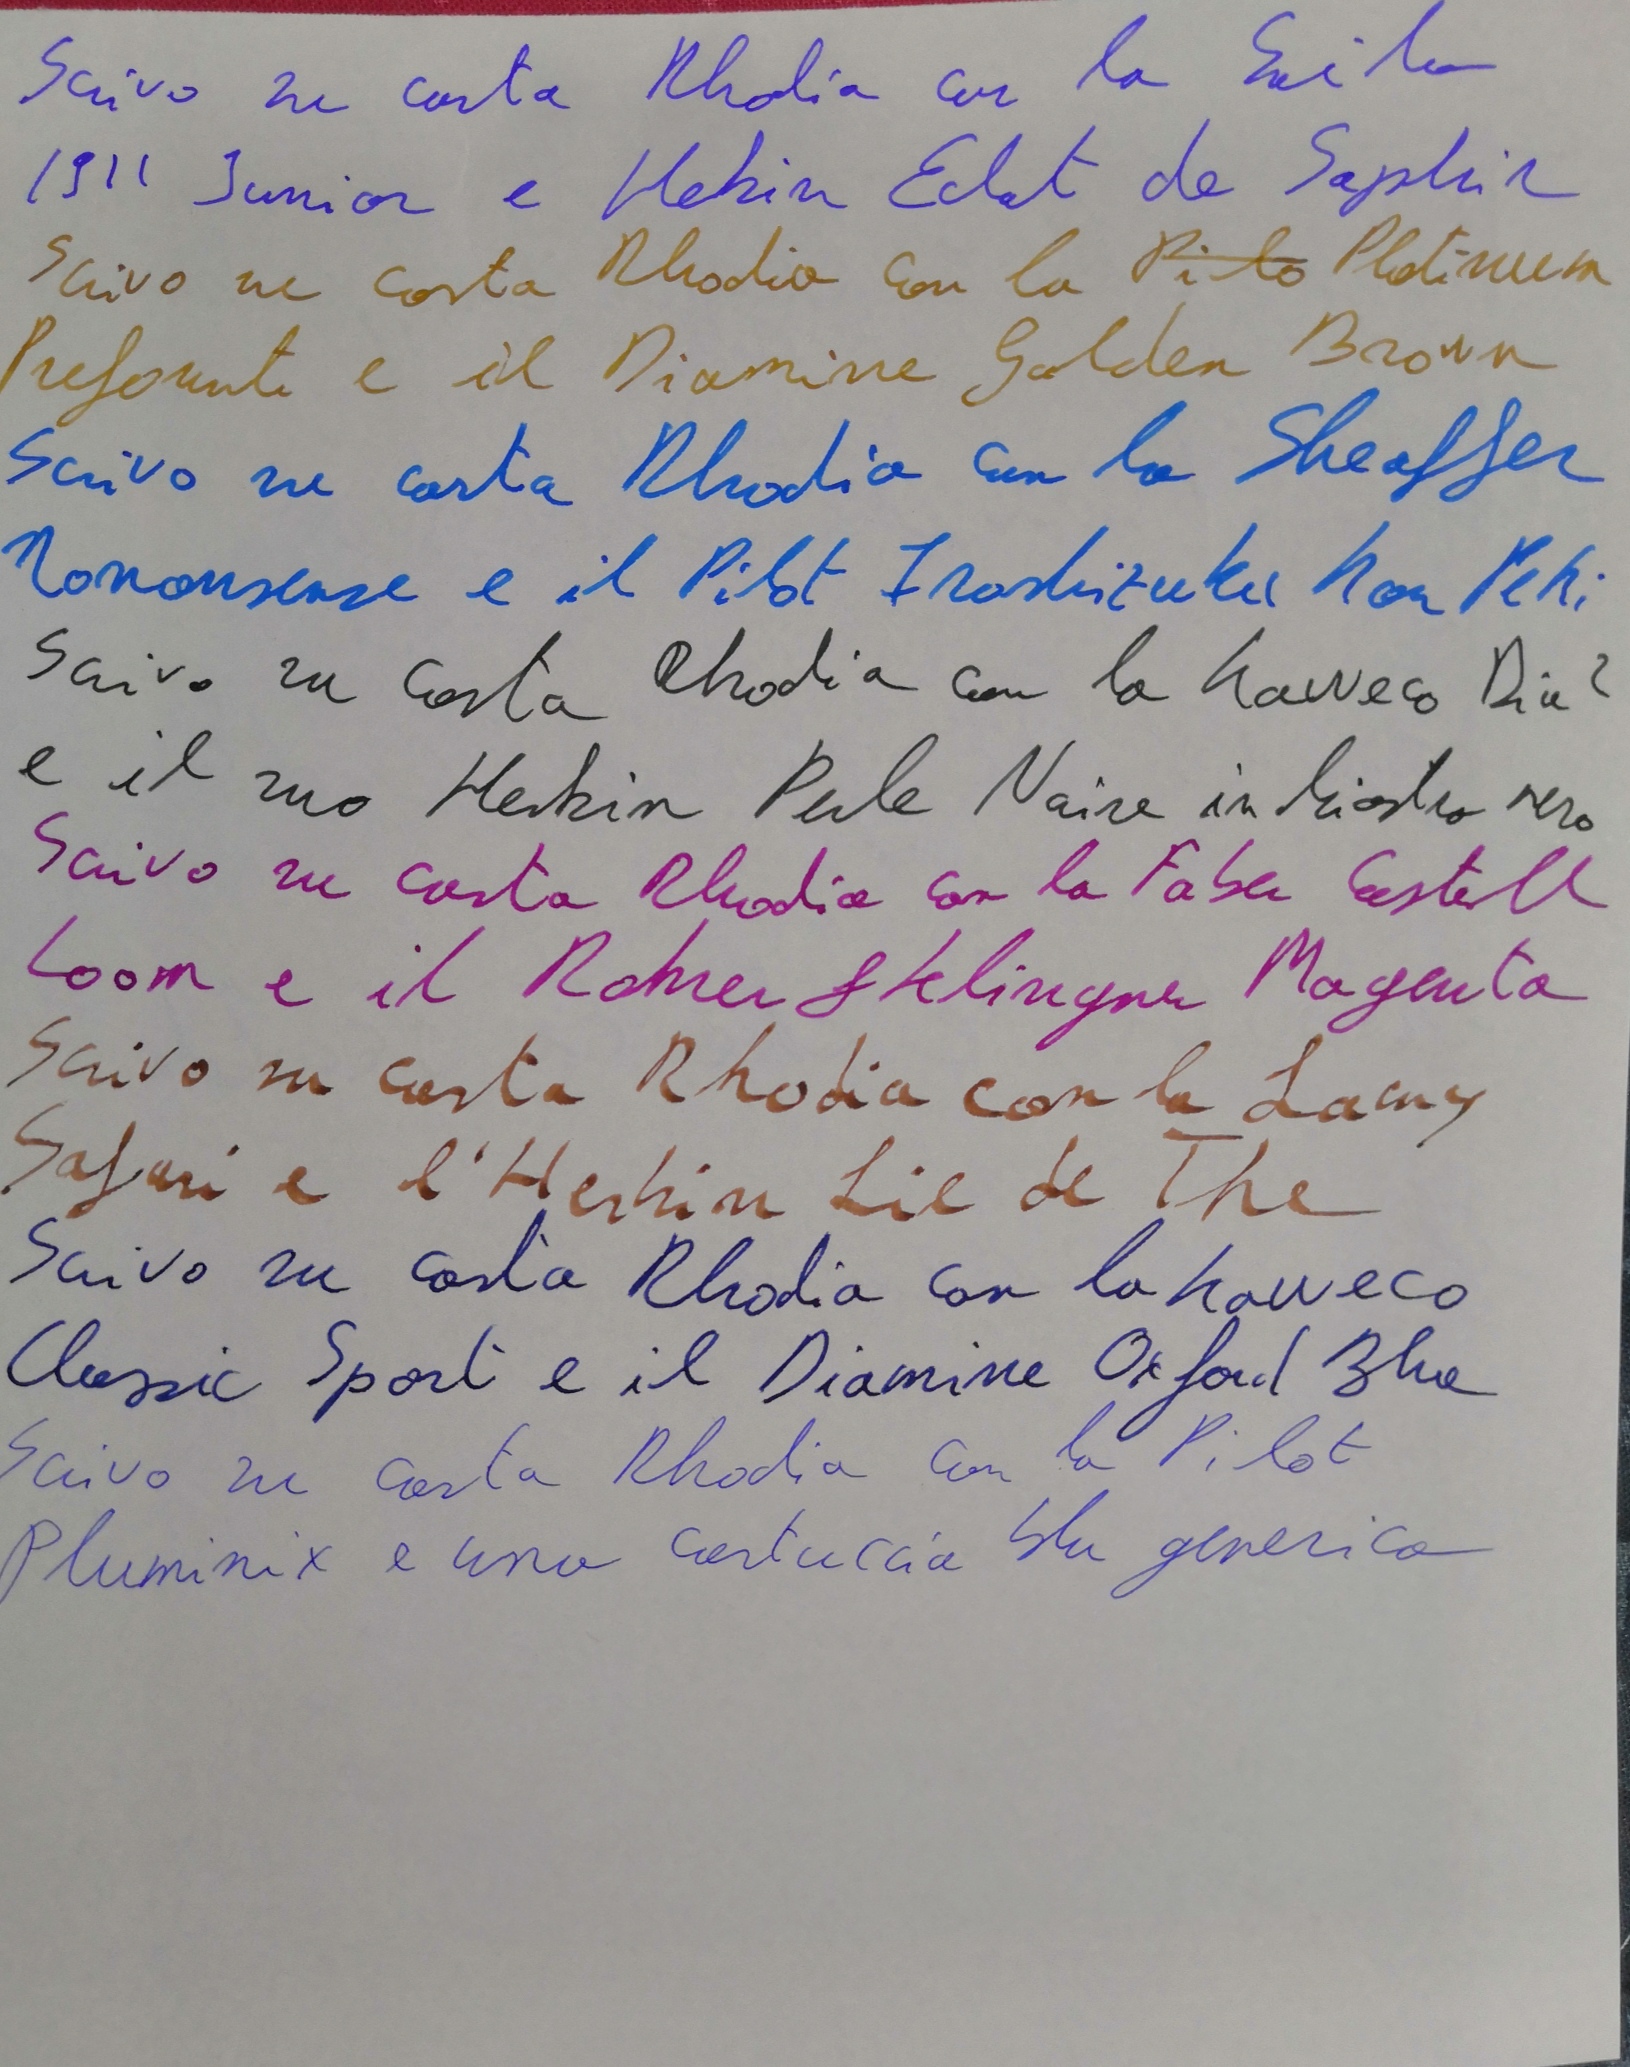 Scrivo su carta Rhodia con la Sailor
1911 Junior e Herbin Eclat de Saphir
Scrivo su carta Rhodia con la Pilo Platinum
Preforunte e il Diamine Golden Brown
Scrivo su carta Rhodia con la Sheaffer
Nononsense e il Pilot Iroshizuku Kon Peki
Scrivo su carta Rhodia con la Kaweco Dia2
e il suo Herbin Perle Noire inchiostro nero
Scrivo su carta Rhodia con la Faber Castell
Loom e il Rohrer & Klingner Magenta
Scrivo su carta Rhodia con la Lamy
Safari e l'Herbin Lie de The
Scrivo su carta Rhodia con la Kaweco
Classic Sport e il Diamine Oxford Blue
Scrivo su carta Rhodia con la Pilot
Pluminix e una cartuccia blu generica